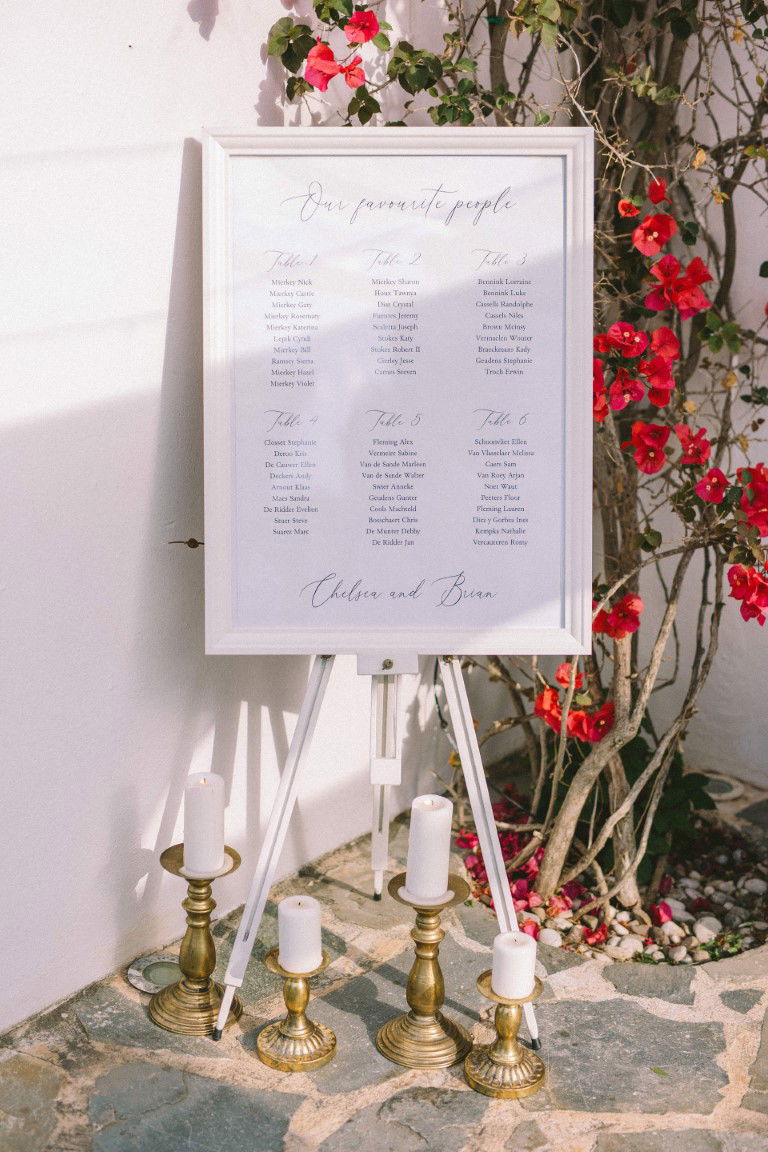 Our favourite people
Table 1
Mierkey Nick
Mierkey Carrie
Mierkey Gaty
Mierkey Rosemary
Mierkey Katerina
Lepik Cyndi
Mierkey Bill
Ramsey Sierra
Mierkey Hazel
Mierkey Violet
Table 2
Mierkey Sharon
Houx Tawnya
Diaz Crystal
Fuentes Jeremy
Scaletta Joseph
Stokes Katy
Stokes Robert II
Cierley Jesse
Curnes Steven
Table 3
Bennink Lorraine
Bennink Luke
Cassells Randolphe
Cassels Niles
Brown Mcinsy
Vermaelen Wouter
Braeckmans Kady
Geudens Stephanie
Troch Erwin
Table 4
Closset Stephanie
Deroo Kris
De Cauwer Ellen
Deckers Andy
Arnout Klaas
Maes Sandra
De Ridder Evelien
Stuer Steve
Suarez Marc
Table 5
Fleming Alex
Vermeire Sabine
Van de Sande Marleen
Van de Sande Walter
Sister Anneke
Geudens Gunter
Cools Machteld
Bosschaert Chris
De Munter Debby
De Ridder Jan
Table 6
Schoonvliet Ellen
Van Vlasselaer Melissa
Caers Sam
Van Roey Arjan
Noet Wout
Peeters Floor
Fleming Lauren
Diez y Gorbea Ines
Kempka Nathalie
Vercauteren Romy
Chelsea and Brian